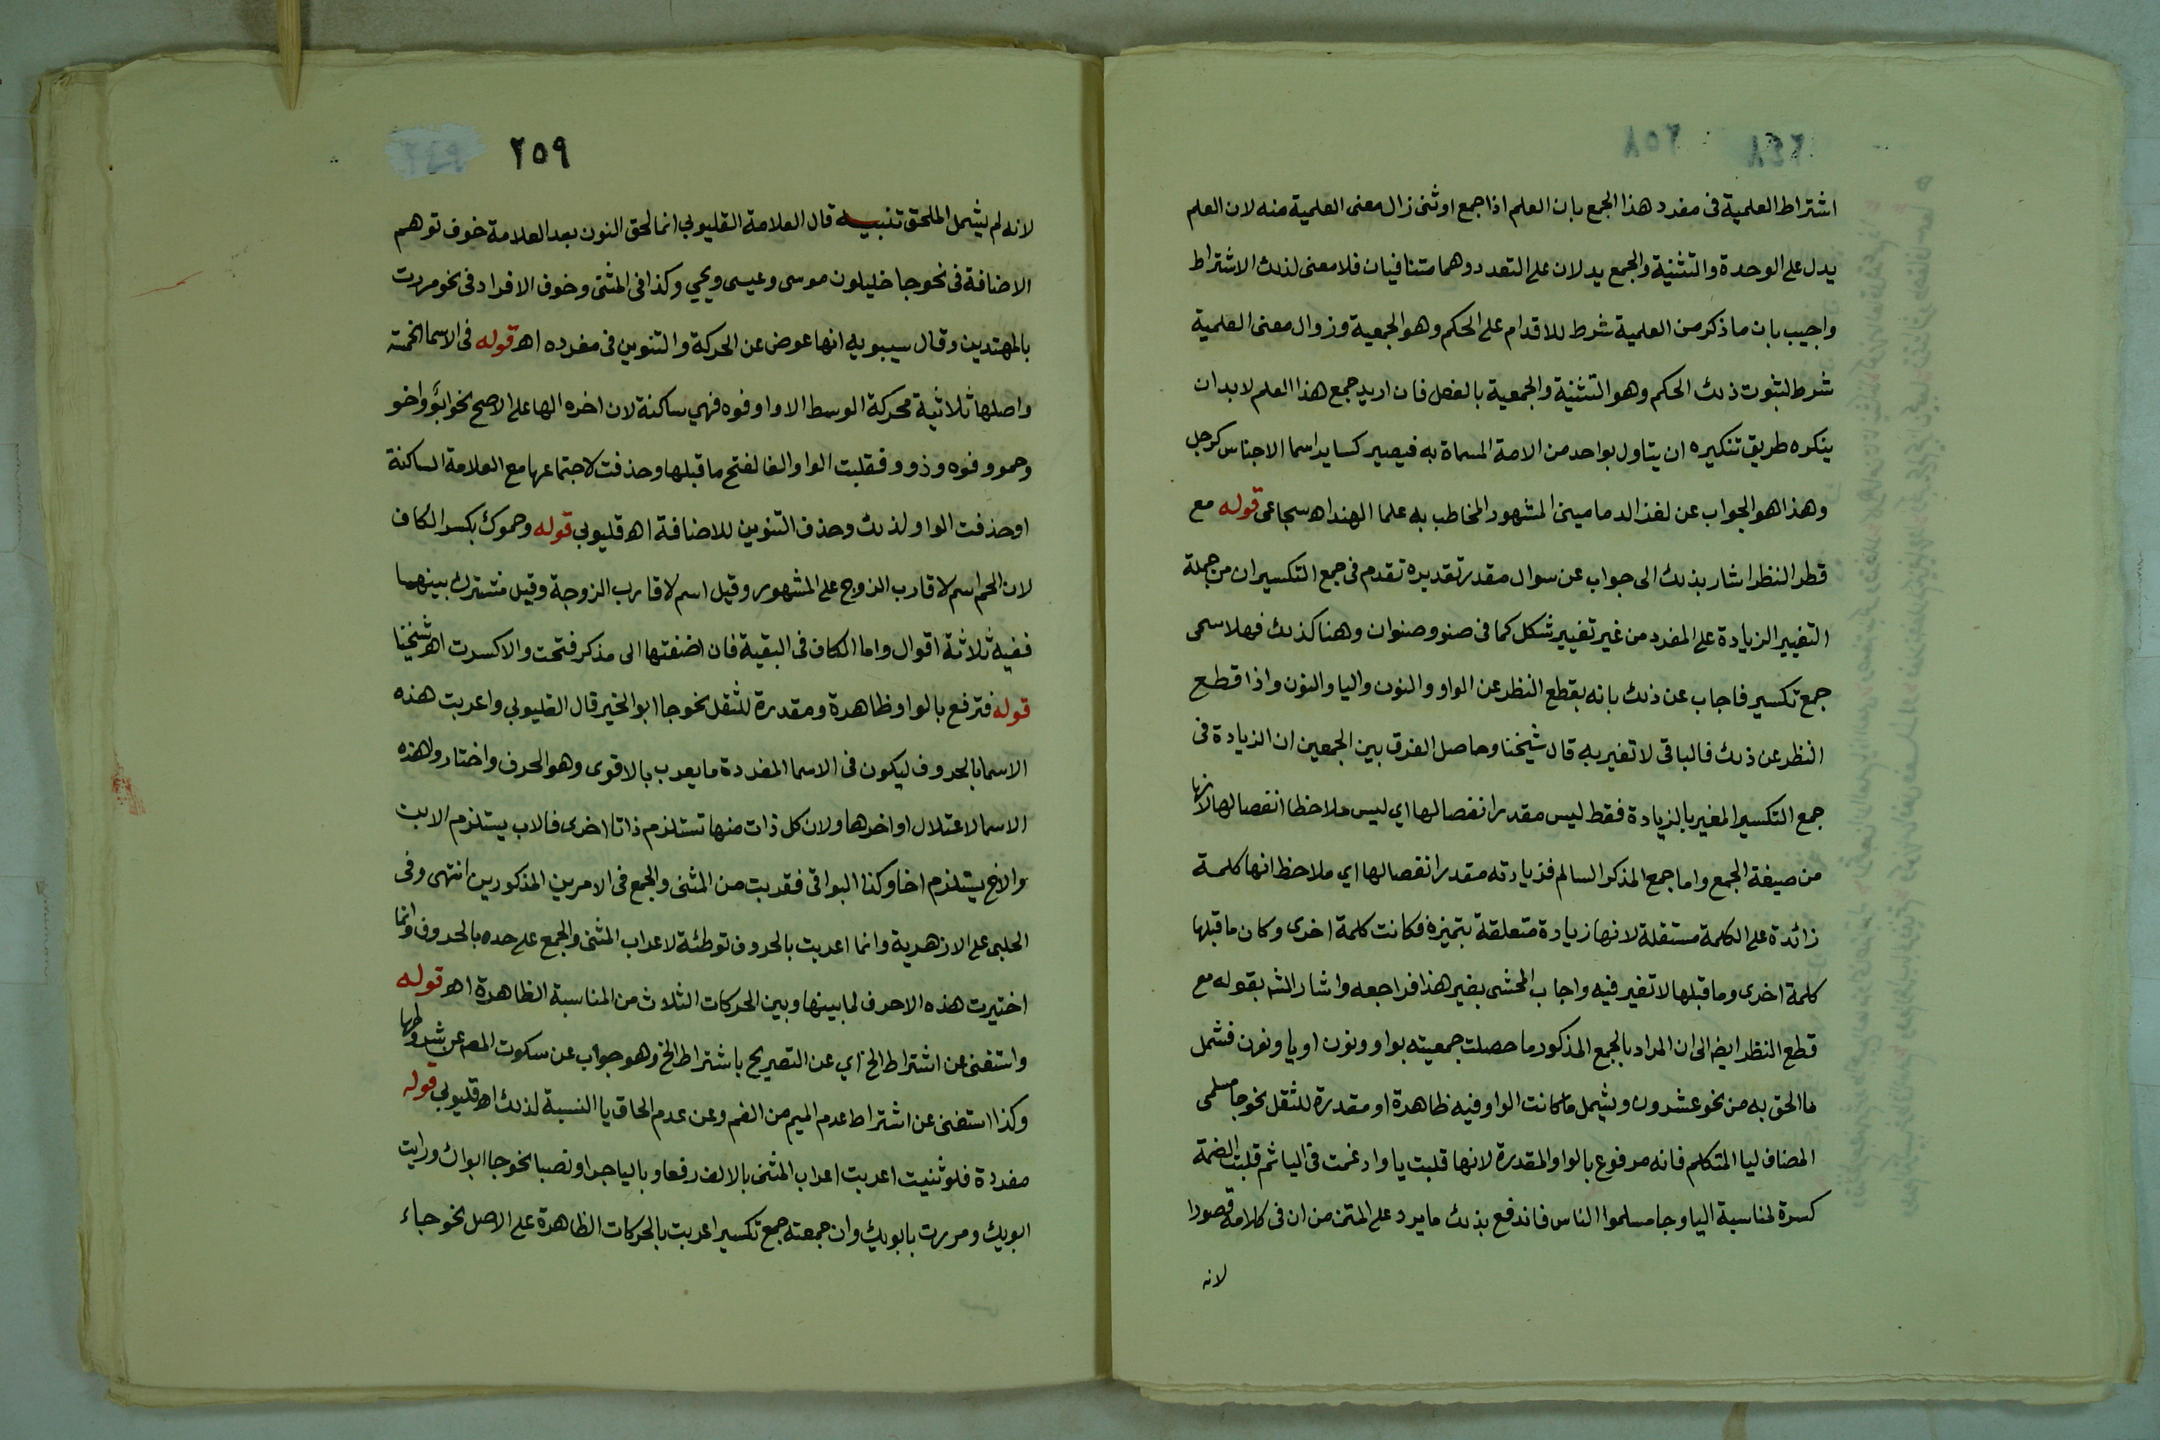 ٢٥٨
اشتراط العلمية فى مفرد هذا الجمع بان العلم اذا جمع او ثنى زال معنى العلمية منه لان العلم
يدل على الوحدة والتثنية والجمع يدلان على التعدد وهما متنافيان فلا معنى لذلك الاشتراط
واجيب بان ما ذكر من العلمية شرط للاقدام على الحكم وهو الجمعية وزوال معنى العلمية
شرط لثبوت ذلك الحكم وهو التثنية والجمعية بالفعل فان اريد جمع هذا العلم لابد ان
ينكره طريق تنكيره ان يتاول بواحد من الامة المسماة به فيصير كساير اسما الاجناس كرجل
وهذا هو الجواب عن لغز الدمامينى المشهور المخاطب به علما الهند اه سجاعى قوله مع
قطر النظر اشار بذلك الى جواب عن سوال مقدر تقديره تقدم فى جمع التكسير ان من جملة
التغيير الزيادة على المفرد من غير تغيير شكل كما فى صنو وصنوان وهنا كذلك فهلا سمى
جمع تكسير فاجاب عن ذلك بانه بقطع النظر عن الواو والنون واليا والنون واذا قطع
النظر عن ذلك فالباقى لا تغير به قال شيخنا وحاصل الفرق بين الجمعين ان الزيادة فى
جمع التكسير المغير بالزيادة فقط ليس مقدرا انفصالها اي ليس ملاحظا انفصالها لانها
من صيغة الجمع واما جمع المذكر السالم فزيادته مقدر انفصالها اي ملاحظ انها كلمة
زائدة على الكلمة مستقلة لانها زيادة متعلقة بتميزه فكانت كلمة اخرى وكان ما قبلها
كلمة اخرى وما قبلها لا تغير فيه واجاب المحشى بغير هذا فراجعه واشار الشه بقوله مع
قطع النظر ايضا الى ان المراد بالجمع المذكور ما حصلت جمعيته بواو ونون او يا ونون فشمل
ما الحق به من نحو عشرون ويشمل ما كانت الواو فيه ظاهرة او مقدرة للثقل نحو جا مسلمى
المضاف ليا المتكلم فانه مرفوع بالواو المقدرة لانها قلبت يا وادغمت فى اليا ثم قلبت الضمة
كسرة لمناسبة اليا وجا مسلموا الناس فاندفع بذلك ما يرد على المتن من ان فى كلامه قصورا
لانه
٢٥٩
لانه لم يشمل الملحق تنبيه قال العلامة القليوبي انما لحق النون بعد العلامة خوف توهم
الاضافة فى نحو جا خليلون موسى وعيسى ويحيي وكذا فى المثنى وخوف الافراد فى نحو مررت
بالمهتدين وقال سيبويه انها عوض عن الحركة والتنوين فى مفرده اه قوله فى الاسما الخمسة
واصلها ثلاثية محركة الوسط الاواو فوه فهي ساكنة لان اخره الها على الاصح نحو ابو واخو
وحمو وفوه وذوو فقلبت الواو الفا لفتح ما قبلها وحذفت لاجتماعها مع العلامة الساكنة
او حذفت الواو لذلك وحذف التنوين للاضافة اه قليوبي قوله وحموك بكسر الكاف
لان الحم اسم لاقارب الزوج على المشهور وقيل اسم لاقارب الزوجة وقيل مشترك بينهما
ففيه ثلاثة اقوال واما الكاف فى البقية فان اضفتها الى مذكر فتحت والا كسرت اه شيخنا
قوله فترفع بالواو ظاهرة ومقدرة للثقل نحو جا ابو الخير قال القليوبي واعربت هذه
الاسما بالحروف ليكون فى الاسما المفردة ما يعرب بالاقوى وهو الحرف واختاروا هذه
الاسما لاعتلال اواخرها ولان كل ذات منها تستلزم ذاتا اخرى فالاب يستلزم الابن
والاخ يستلزم اخا وكذا البواقى فقربت من المثنى والجمع فى الامرين المذكورين انتهى وفى
الحلبى على الازهرية وانما اعربت بالحروف توطئة لاعراب المثنى والجمع على حده بالحروف وانما
اختيرت هذه الاحرف لما بينها وبين الحركات الثلاث من المناسبة الظاهرة اه قوله
واستغنى عن اشتراط الخ اي عن التصريح باشتراط الخ وهو جواب عن سكوت المص عن شروطها
وكذا استغنى عن اشتراط عدم الميم من الفم وعن عدم الحاق يا النسبة لذلك اه قليوبي قوله
مفردة فلو ثنيت اعربت اعراب المثنى بالالف رفعا وباليا جرا ونصبا نحو جا ابوان ورايت
ابويك ومررت بابويك وان جمعته جمع تكسير اعربت بالحركات الظاهرة على الاصل نحو جاء